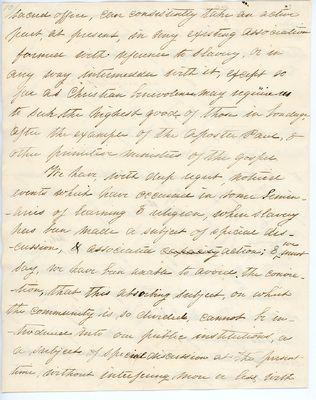 sacred office, can consistently take an active
part at present, in any existing association
formed with reference to slavery, or in
any way intermeddle with it, except so
far as Christian benevolence may require us
to seek the highest good of those in bondage
after the example of the Apostle Paul, &
other primitive ministers of the gospel.
We have, with deep regret, noticed
events which have occurred in some Semin-
-aries of learning & religion, where slavery
has been made a subject of special dis-
-cussion, & associated action; & we must
say, we have been unable to avoid, the convic-
-tion, that this absorbing subject, on which
the community is so divided, cannot be in-
-troduced into our public institutions, as
a subject of special discussion at the present
time, without interfering more or less, with